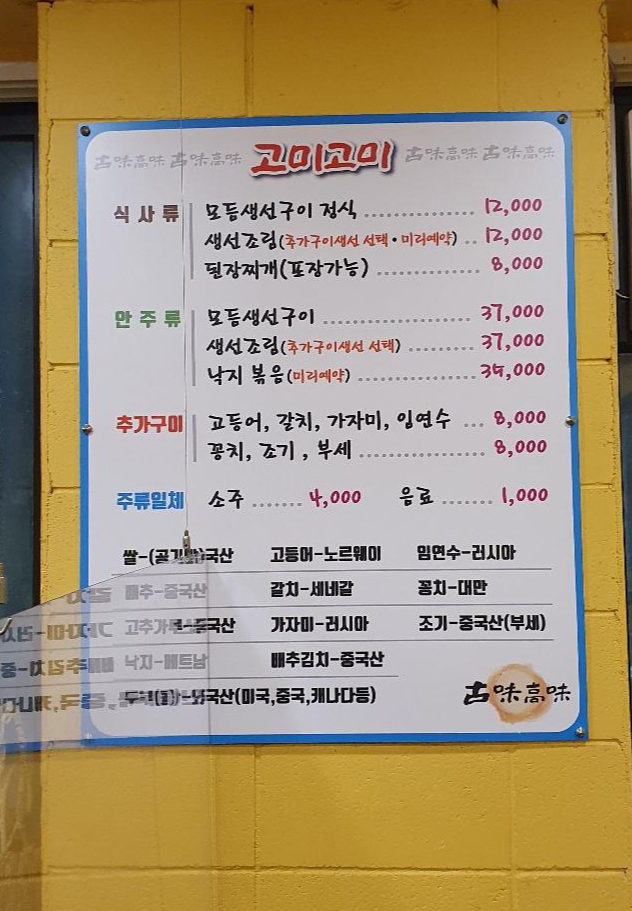 古味高味 古味高味 고미고미 古味高味 古味高味
식사류 모듬생선구이 정식 12,000
생선조림(추가구이생선 선택·미리예약) 12,000
된장찌개(포장가능) 8,000
안주류 모듬생선구이 37,000
생선조림(추가구이생선 선택) 37,000
낙지 볶음(미리예약)
추가구이 고등어, 갈치, 가자미, 임연수 8,000
꽁치, 조기, 부세 8,000
주류일체 소주 4,000 음료 1,000
쌀-(공기밥)국산 고등어-노르웨이 임연수-러시아
배추-중국산 갈치-세네갈 꽁치-대만
고추가루-중국산 가자미-러시아 조기-중국산(부세)
낙지-베트남 배추김치-중국산
외국산(미국,중국,캐나다등)
古味高味